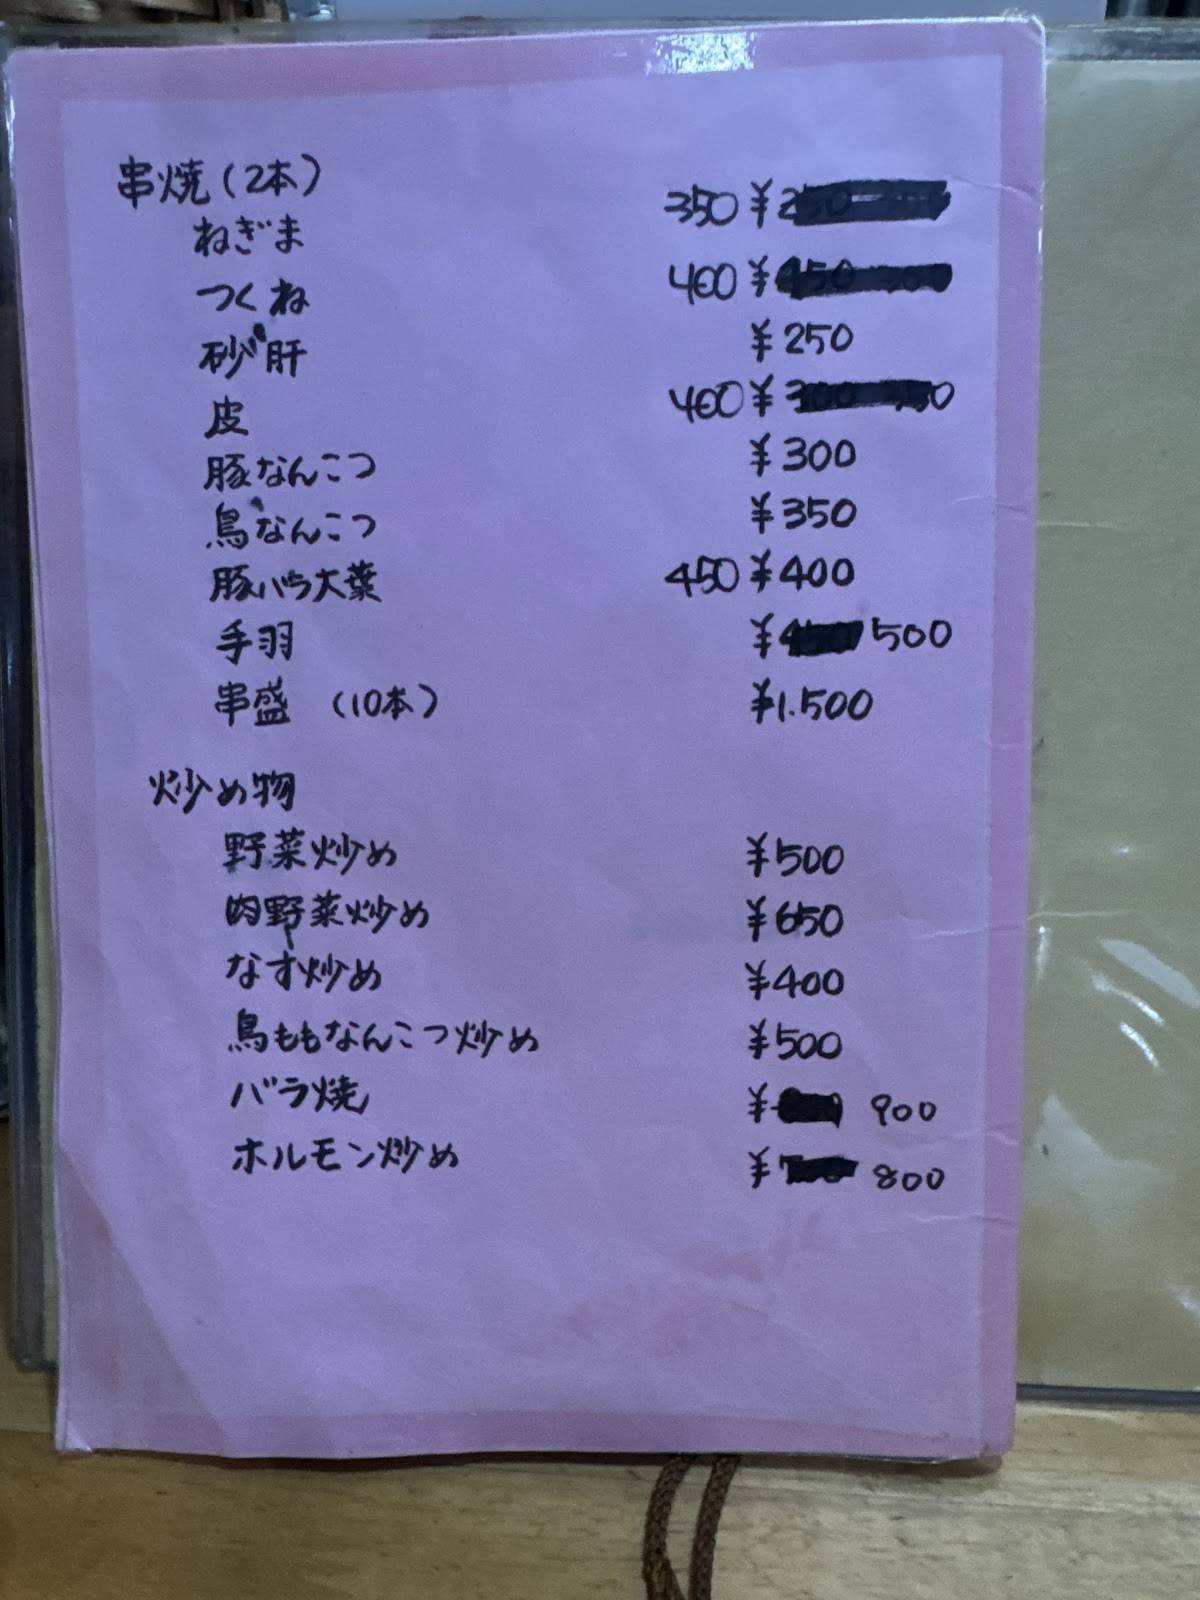 串焼(2本)
ねぎま 350 ¥
つくね 400 ¥
砂肝 ¥250
皮 400 ¥
豚なんこつ ¥300
鳥なんこつ ¥350
豚バラ大葉 450 ¥400
手羽 ¥ 500
串盛 (10本) ¥1.500
炒め物
野菜炒め ¥500
肉野菜炒め ¥650
なす炒め ¥400
鳥ももなんこつ炒め ¥500
バラ焼 ¥ 900
ホルモン炒め ¥ 800